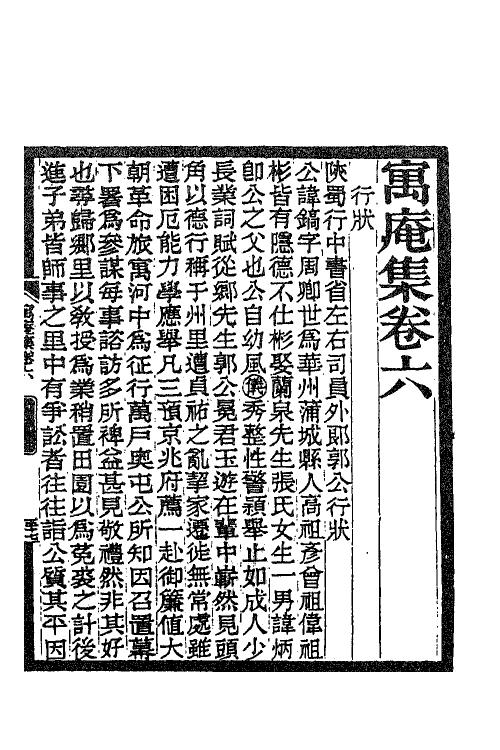 寓庵集卷六
行狀
陝蜀行中書省左右司員外郎郭公行狀
公諱鎬字周卿世爲華州蒲城縣人高祖彥曾祖偉祖
彬皆有隱德不仕彬娶蘭泉先生張氏女生一男諱炳
卽公之父也公自幼風儀秀整性警頴舉止如成人少
長業詞賦從鄉先生郭公冕君玉遊在輩中嶄然見頭
角以德行稱于州里遭貞祐之亂挈家遷徙無常處雖
遭困厄能力學應舉凡三預京兆府薦一赴御簾値大
朝革命旅寓河中爲征行萬戸奧屯公所知因召置幕
下署爲參謀每事諮訪多所裨益甚見敬禮然非其好
也尋歸鄉里以敎授爲業稍置田園以爲菟裘之計後
進子弟皆師事之里中有爭訟者往往詣公質其平因
寓庵集卷六